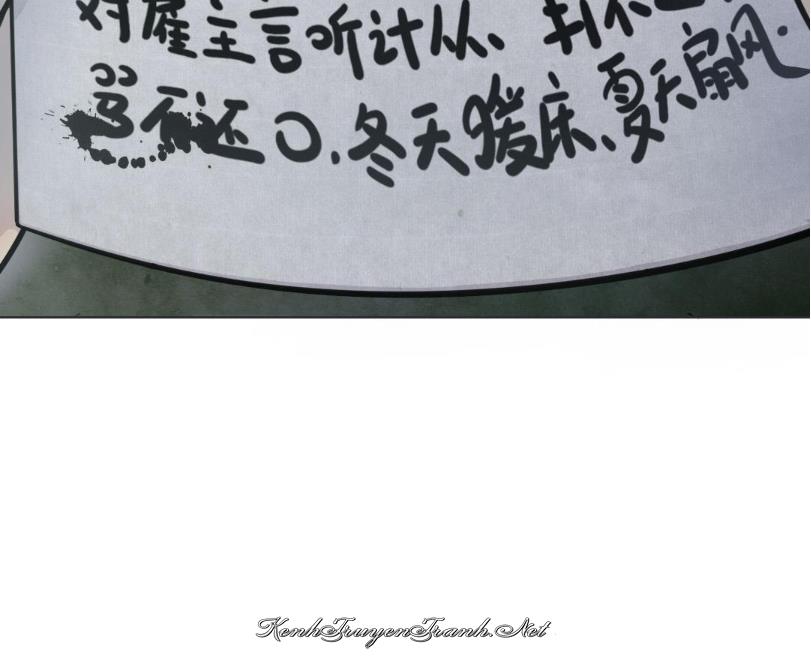 对雇主言听计从、打不
骂不还口.冬天暖床、夏天扇风.
KenhTruyenTranh.Net